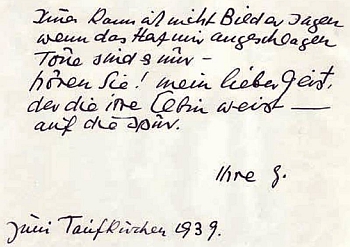 kann ist nicht Bilder sagen
wenn das mir angeschlagen
Töne sind s nur –
hören Sie! mein lieber Geist,
der die irre weist —
auf die Spur.
Ihre G.
Juni Taufkirchen 1939.